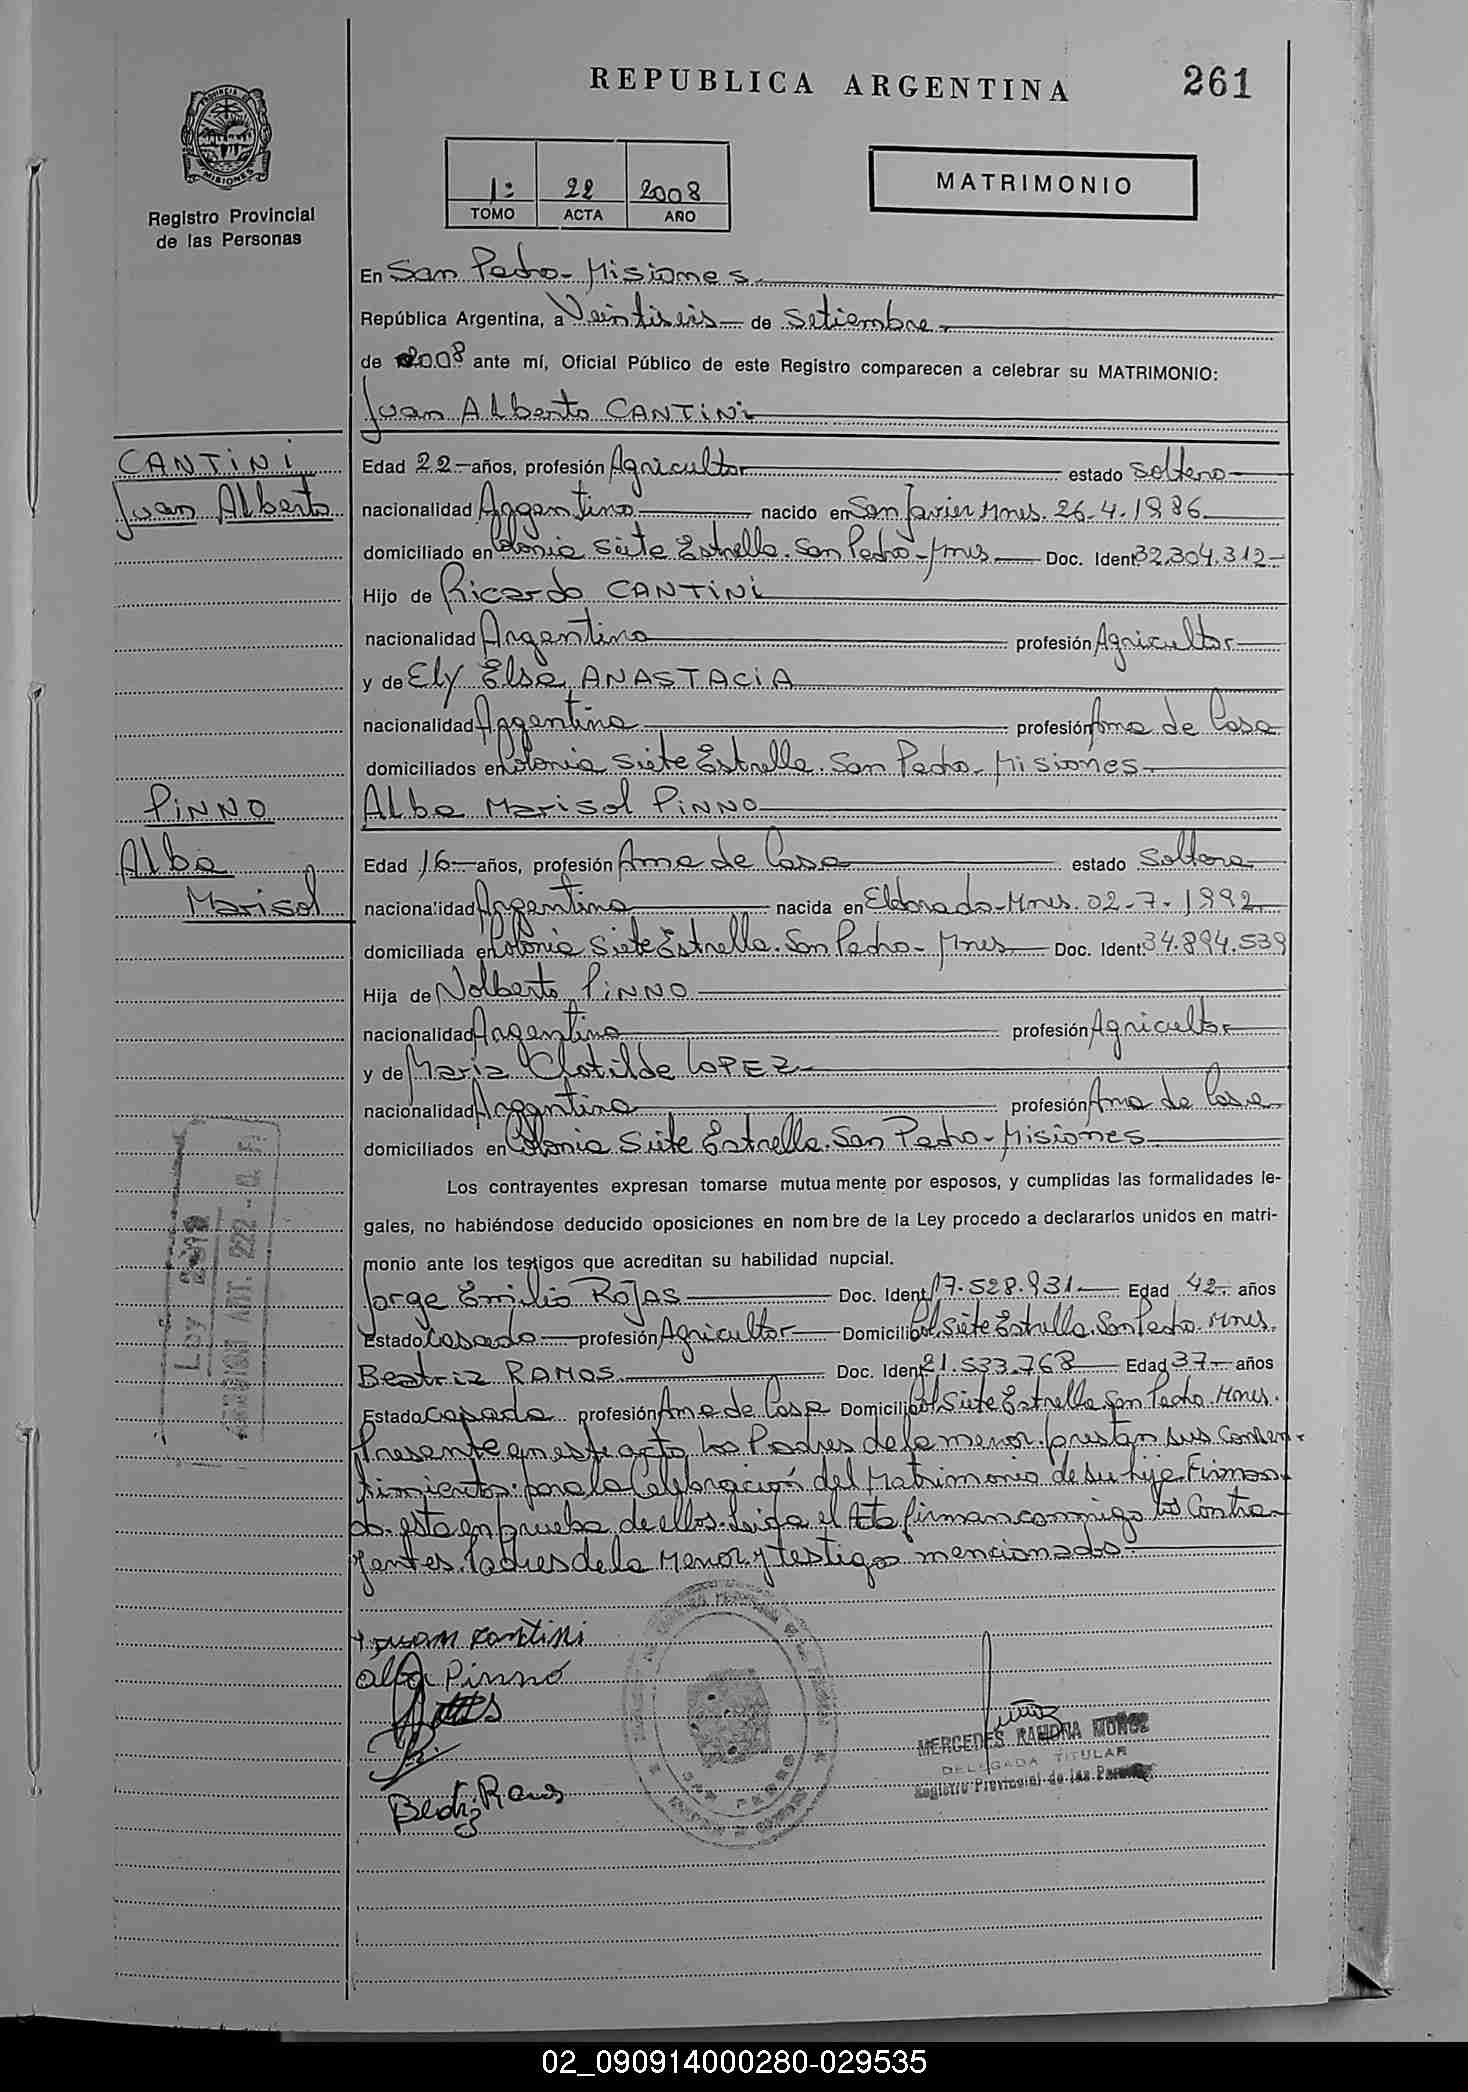 REPUBLICA ARGENTINA
261
PROVINCIA DE
MISIONES
Registro Provincial
de las Personas
1: 22 2008
TOMO ACTA AÑO
MATRIMONIO
En San Pedro - Misiones
República Argentina, a Veintiseis de Setiembre
de 2008 ante mí, Oficial Público de este Registro comparecen a celebrar su MATRIMONIO:
Juan Alberto CANTINI
CANTINI
Juan Alberto
Edad 22 años, profesión Agricultor estado Soltero
nacionalidad Argentino nacido en San Javier Mnes. 26-4-1986
domiciliado en Colonia Siete Estrella. San Pedro - Mnes Doc. Ident. 32.304.312
Hijo de Ricardo CANTINI
nacionalidad Argentino profesión Agricultor
y de Ely Elsa ANASTACIA
nacionalidad Argentina profesión Ama de Casa
domiciliados en Colonia Siete Estrella. San Pedro - Misiones
PINNO
Alba
Marisol
Alba Marisol PINNO
Edad 16 años, profesión Ama de Casa estado Soltera
nacionalidad Argentina nacida en Eldorado - Mnes. 02-7-1992
domiciliada en Colonia Siete Estrella. San Pedro - Mnes Doc. Ident. 34.894.539
Hija de Nolberto PINNO
nacionalidad Argentino profesión Agricultor
y de Maria Clotilde LOPEZ
nacionalidad Argentina profesión Ama de Casa
domiciliados en Colonia Siete Estrella. San Pedro - Misiones
Los contrayentes expresan tomarse mutuamente por esposos, y cumplidas las formalidades le-
gales, no habiéndose deducido oposiciones en nombre de la Ley procedo a declararlos unidos en matri-
monio ante los testigos que acreditan su habilidad nupcial.
Jorge Emilio ROJAS Doc. Ident. 17.528.931 Edad 42 años
Estado Casado profesión Agricultor Domicilio Col. Siete Estrella. San Pedro. Mnes.
Beatriz RAMOS Doc. Ident. 21.533.768 Edad 37 años
Estado Casada profesión Ama de Casa Domicilio Col. Siete Estrella San Pedro. Mnes.
Presente en este acto los Padres de la menor prestan sus Consen-
timientos para la Celebración del Matrimonio de su hija Firman-
do esta en prueba de ellos. Leida el Acta firman conmigo los Contra-
yentes. Padres de la Menor y testigos mencionado
Ley
ART. 222
Juan Cantini
alba Pinno
MERCEDES RAMONA MUÑOZ
DELEGADA TITULAR
Registro Provincial de las
02_090914000280-029535